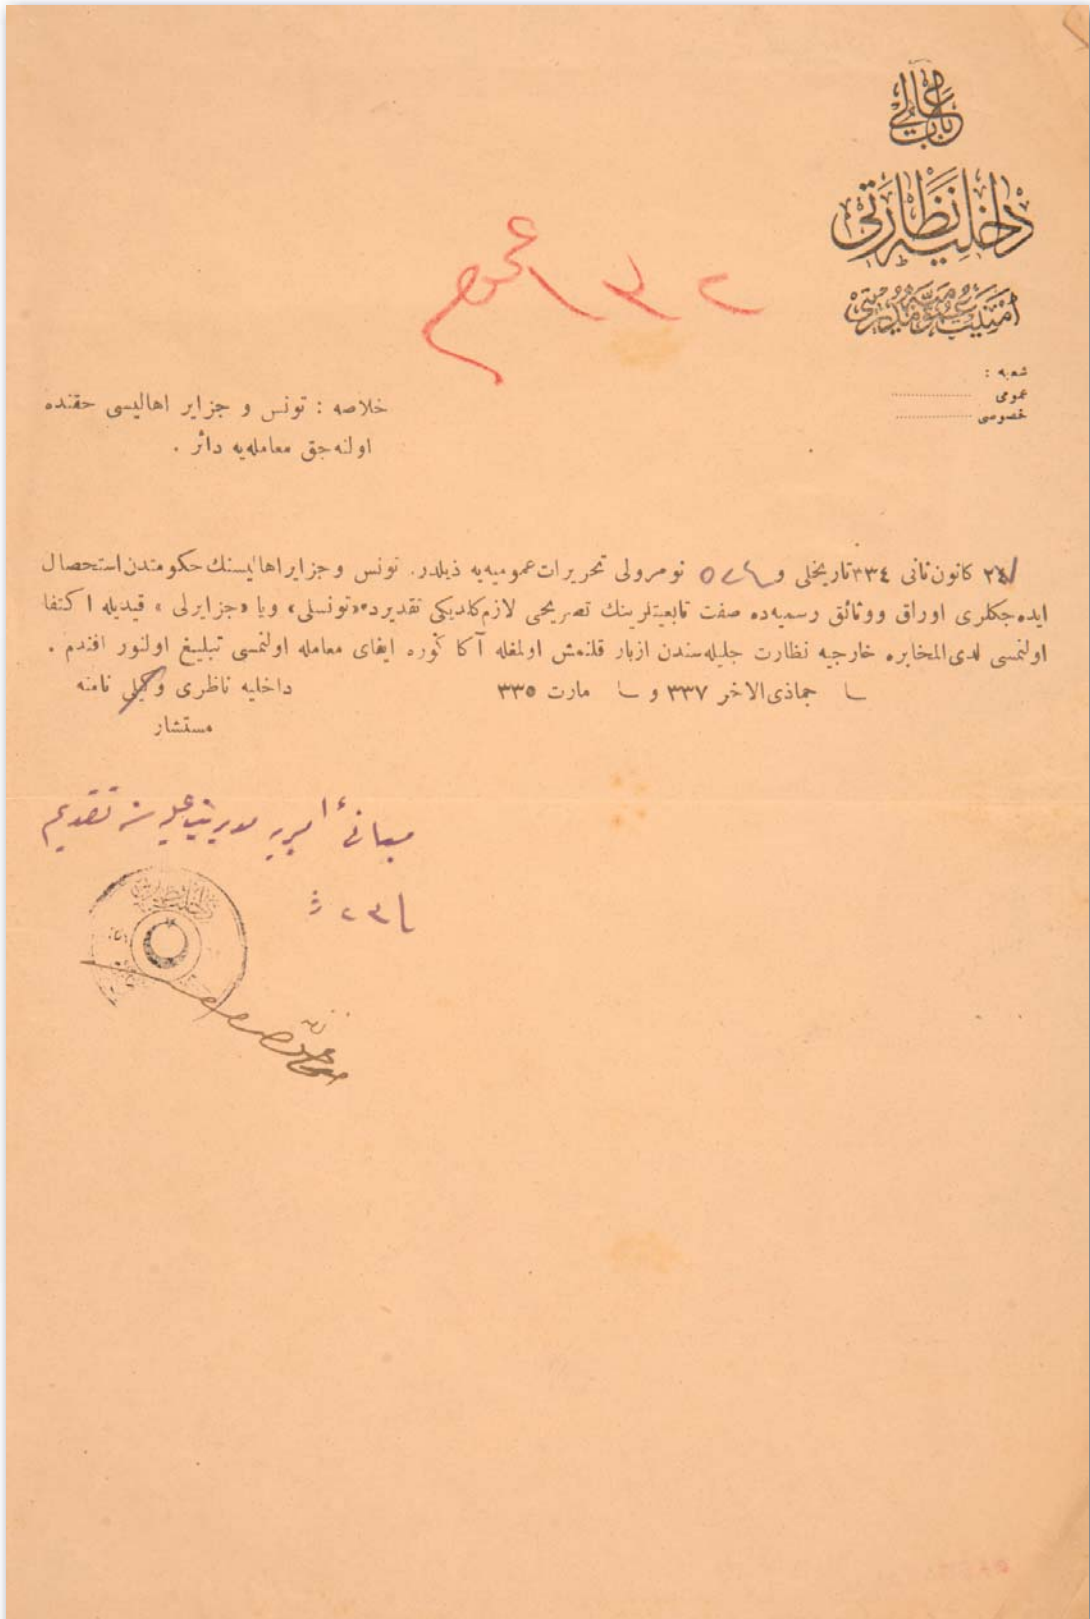 باب عالی
داخلیه نظارتی
امنیت عمومیه مدیریتی
شعبه :
عمومی
خصوصی
خلاصه : تونس و جزایر اهالیسی حقنده
اولنه‌جق معامله‌یه دائر .
٢٤ كانون ثانی ٣٣٤ تاریخلی و نومرولی تحریرات عمومیه‌یه ذیلدر. تونس و جزایر اهالیسنك حكومتدن استحصال
ایده‌جكلری اوراق ووثائق رسمیه‌ده صفت تابعیتلرینك تصریحی لازم كلدیكی تقدیرده «تونسلی» ویا «جزایرلی» قیدیله اكتفا
اولنمسی لدی المخابره خارجیه نظارت جلیله‌سندن ازبار قلنمش اولمغله آكا كوره ایفای معامله اولنمسی تبلیغ اولنور افندم .
جماذی الاخر ٣٣٧ و مارت ٣٣٥
داخلیه ناظری وكیلی نامنه
مستشار
تقدیم